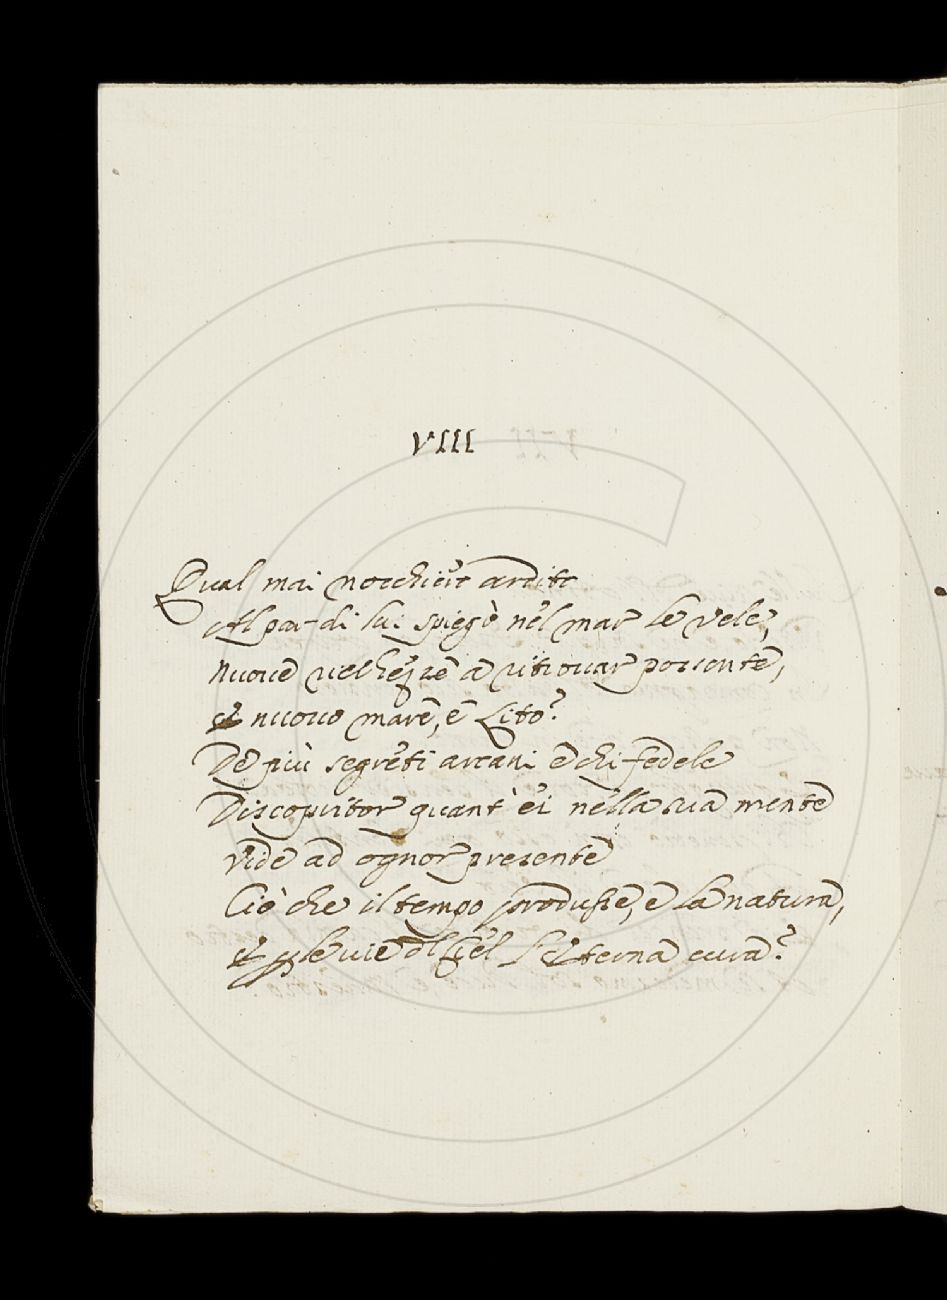 VIII
Qual mai nocchiere ardito
Al par di lui spiegò nel mar le vele,
Nuove ricchezze a ritrovar possente,
E nuovo mare, e Lito?
De più segreti arcani e chi fedele
Discopritor quant' ei nella sua mente
Vide ad ognor presente
Ciò che il tempo produsse, e la natura,
E le vie del Ciel l'Eterna cura?